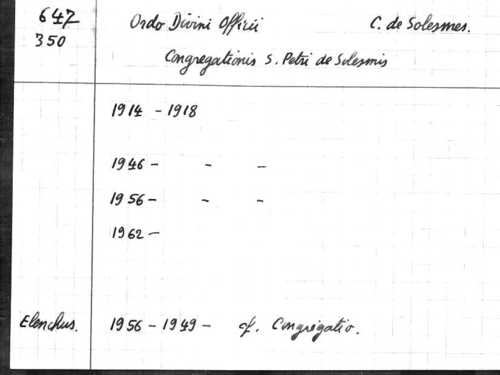 647 Ordo Divini Officii C. de Solesmes.
350
Congregationis S. Petri de Solesmis
1914 - 1918
1946 - - -
1956 - - -
1962 -
Elenchus. 1956 - 1949 - cf. Congregatio.